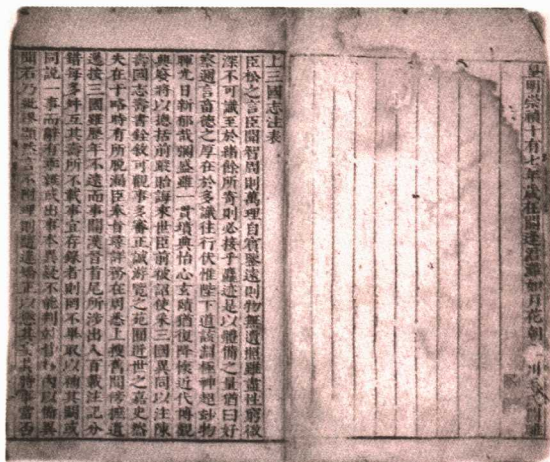 皇明崇禎十有七年歲在閼逢涒灘如月花朝 川毛氏開雕
上三國志注表
臣松之言臣聞智周則萬理自賓鑒遠則物無遺照雖盡性窮微
深不可識至於緒餘所寄則必接乎麤迹是以體備之量猶曰好
察邇言畜德之厚在於多識往行伏惟陛下道該淵極神超妙物
暉光日新郁哉彌盛雖一貫墳典怡心玄賾猶復降懷近代博觀
興廢將以總括前蹤貽誨來世臣前被詔使采三國異同以注陳
壽國志壽書銓敘可觀事多審正誠游覽之苑囿近世之嘉史然
失在于略時有所脫漏臣奉旨尋詳務在周悉上搜舊聞傍摭遺
逸按三國雖歷年不遠而事關漢晉首尾所涉出入百載注記分
錯每多舛互其壽所不載事宜存錄者則罔不畢取以補其闕或
同說一事而辭有乖雜或出事本異疑不能判並皆抄內以備異
聞若乃紕繆顯然言不附理則隨違矯正以懲其妄其時事當否